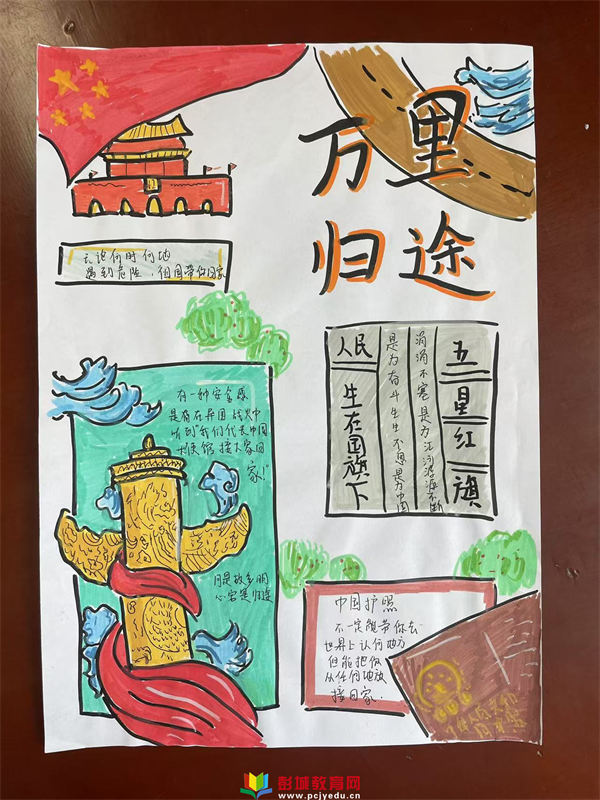 万里
归途
无论何时何地
遇到危险，祖国带你回家
有一种安全感
是高在异国 战火中
听到“我们代表中国
大使馆 接大家回
家!”
月是故乡明
心安是归途
五星红旗
涓涓不塞是为江河源源不断
是为奋斗生生不息是为中国
人民
生在国旗下
中国护照
不一定能带你去
世界上认何地方
但能把你
从任何地放
接回家.
彭城教育网
www.pcjyedu.cn